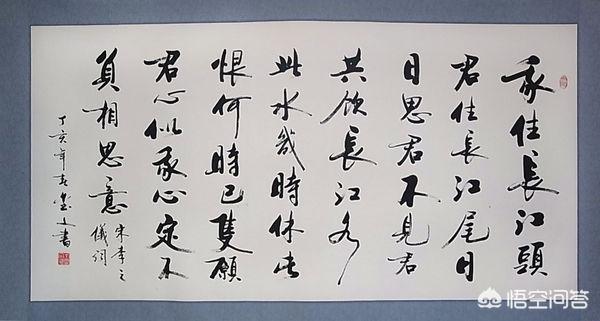 我住長江頭
君住長江尾日
日思君不見君
共飲長江水
此水幾時休此
恨何時已隻願
君心似我心定不
負相思意
宋李之
儀詞
丁亥年春文書
悟空问答